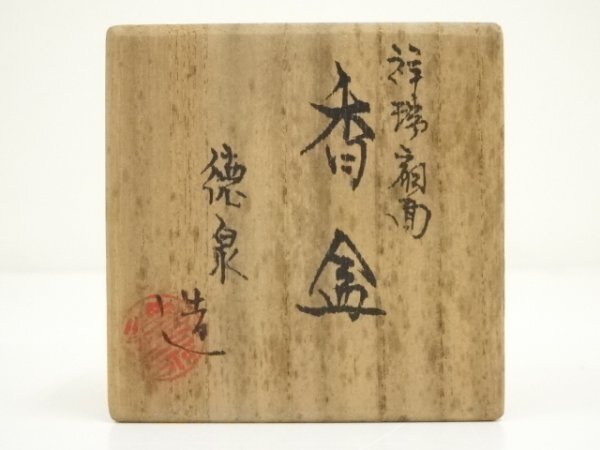 祥瑞扇面
香盒
徳泉
造